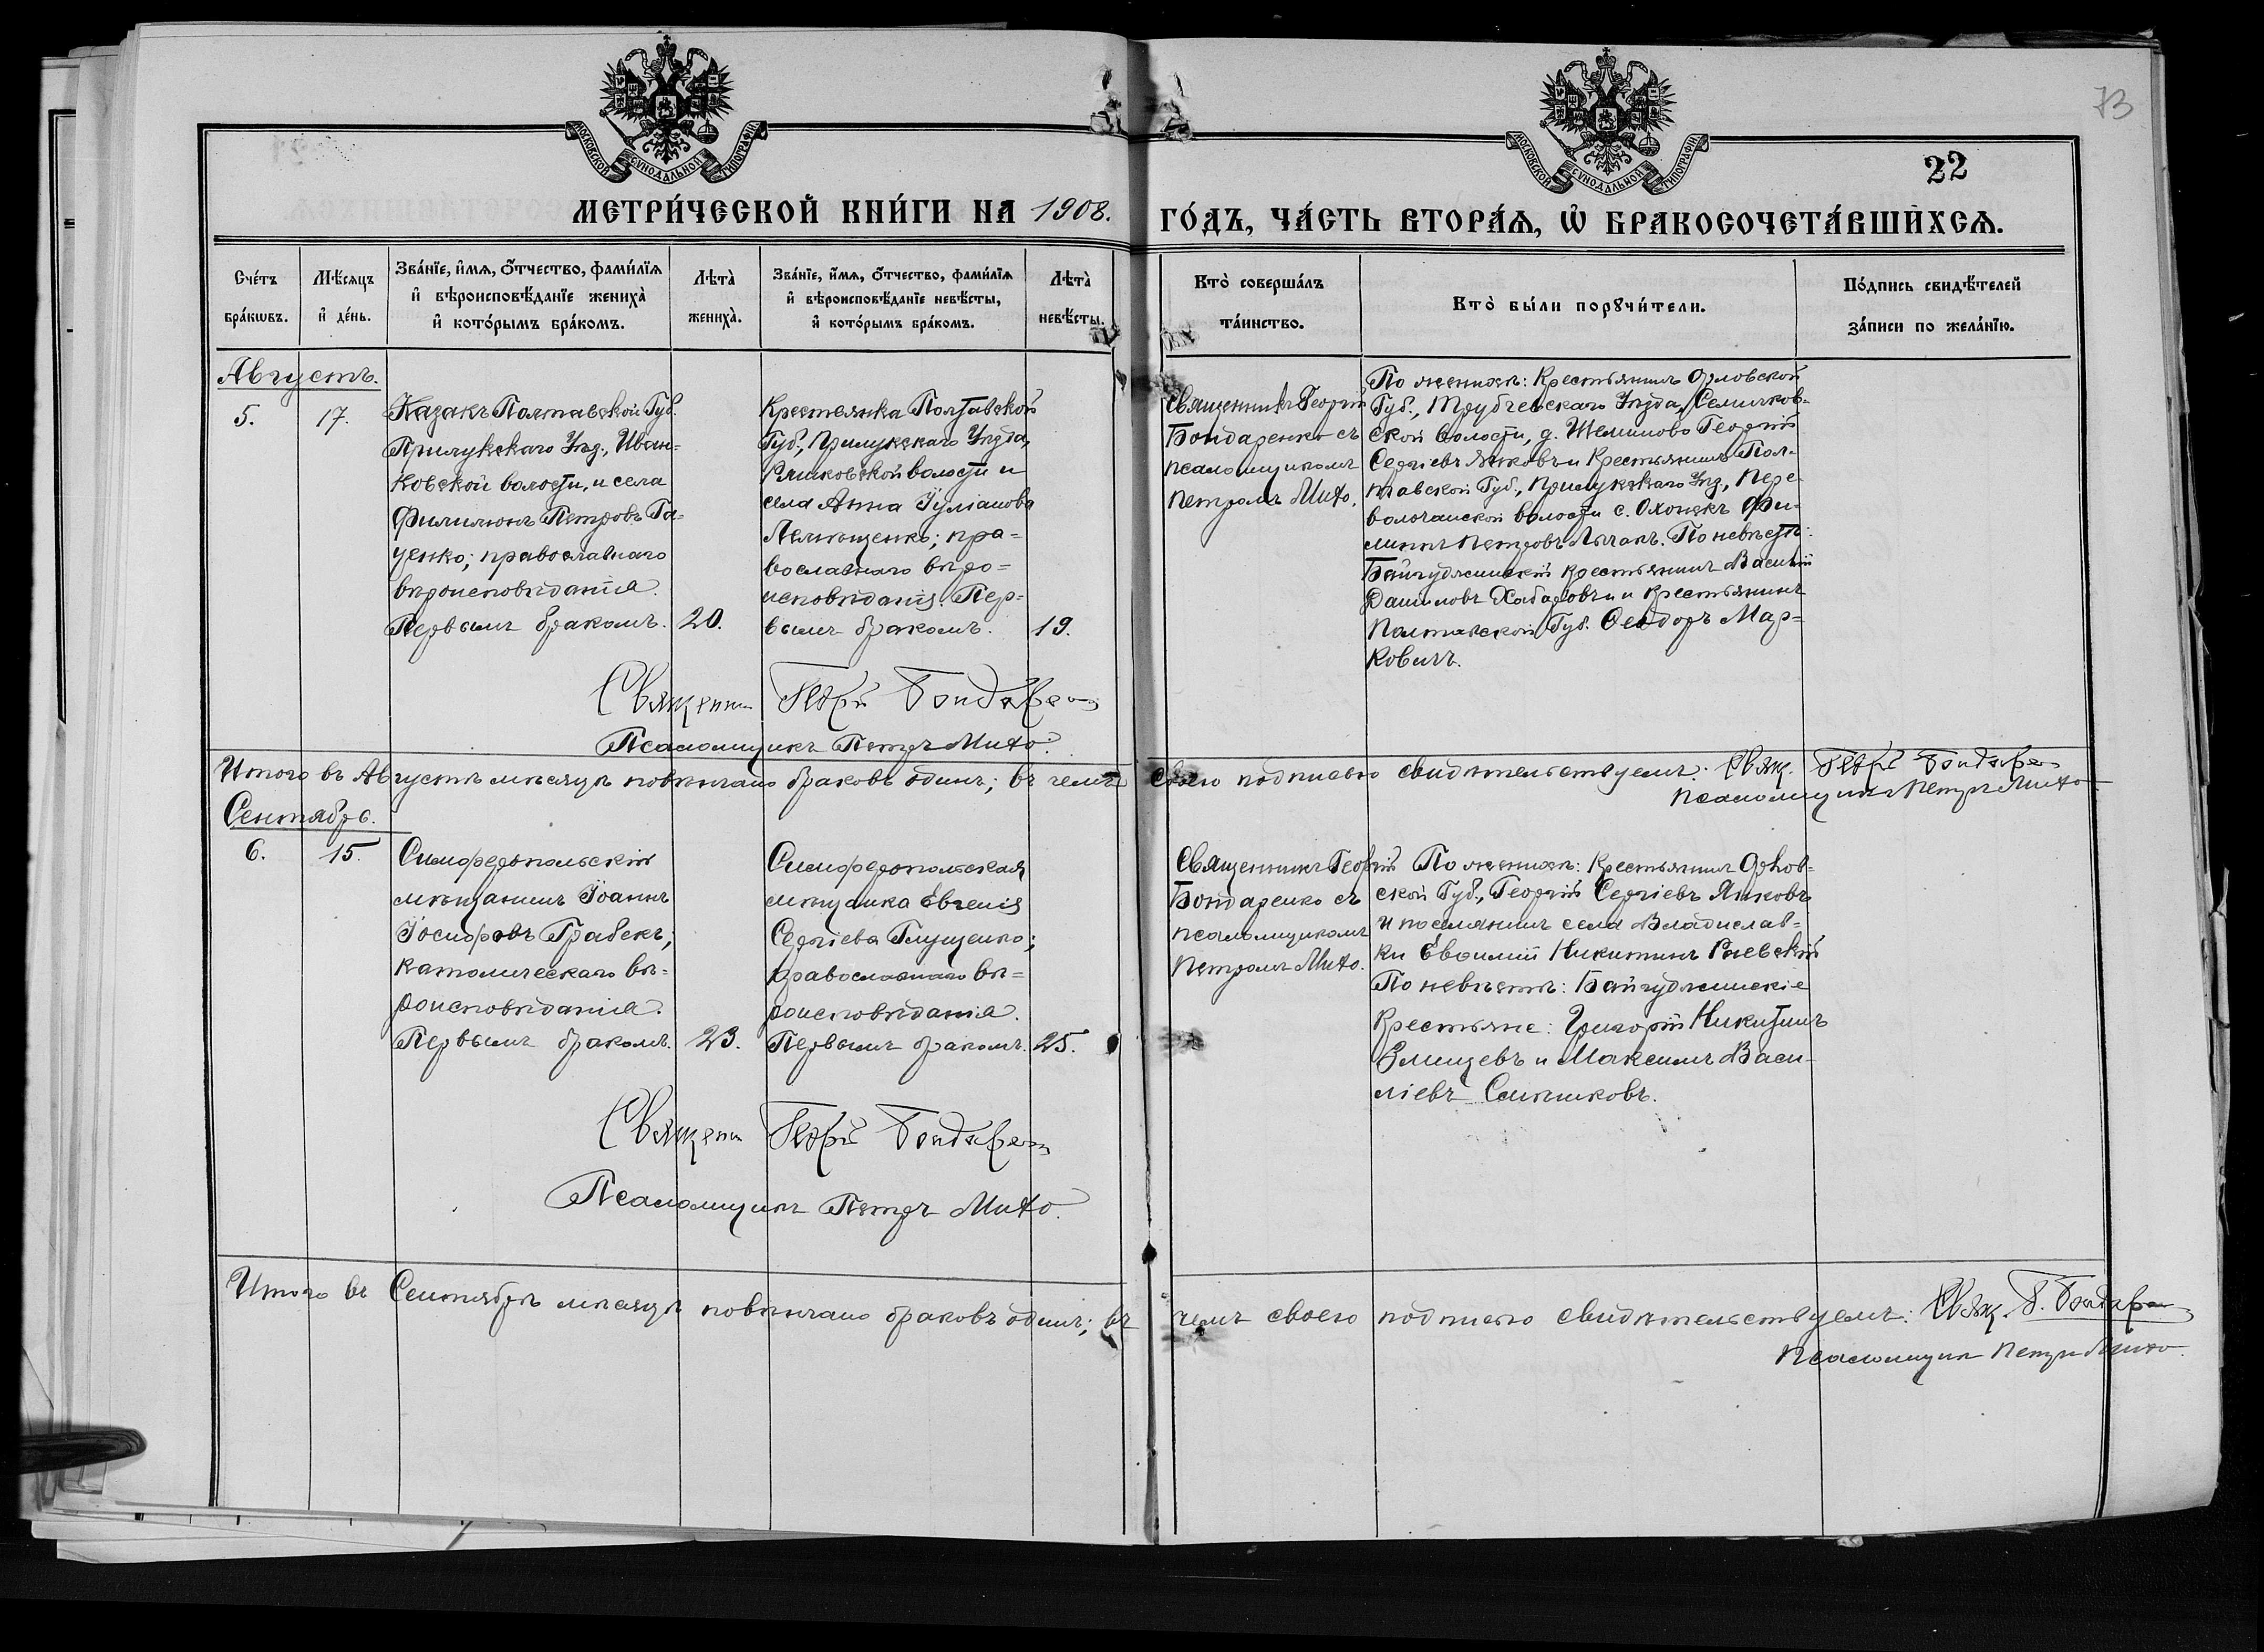 73
22
МОСКОВСКОЙ СУНОДАЛЬНОЙ ТИПОГРАФІИ
МОСКОВСКОЙ СУНОДАЛЬНОЙ ТИПОГРАФІИ
МЕТРИ́ЧЕСКОЙ КНИ́ГИ НА 1908. ГО́ДЪ, ЧА́СТЬ ВТОРА́Ѧ, Ѡ БРАКОСОЧЕТА́ВШИХСѦ.
Сче́тъ
бра́кѡвъ.
Мѣ́сяцъ
и де́нь.
Зва́нїе, и́мѧ, ѻ́тчество, фами́лїѧ
и вѣроисповѣ́данїе жениха̀
и кото́рымъ бра́комъ.
Лѣта̀
жениха̀.
Зва́нїе, и́мѧ, ѻ́тчество, фами́лїѧ
и вѣроисповѣ́данїе невѣ́сты,
и кото́рымъ бра́комъ.
Лѣта̀
невѣ́сты.
Кто̀ соверша́лъ
та́инство.
Кто̀ бы́ли порꙋчи́тели.
По́дпись свидѣ́телей
за́писи по жела́нїю.
Августъ.
5.
17.
Казакъ Полтавской Губ.
Прилукскаго Уѣз., Иван-
ковской волости, и села
Филимонъ Петровъ Га-
ценко; православнаго
вѣроисповѣданія.
Первымъ бракомъ.
20.
Крестьянка Полтавской
Губ., Прилукскаго Уѣзда,
волости и
села Анна Іуліанова
пра-
вославнаго вѣро-
исповѣданія. Пер-
вымъ бракомъ.
19.
Священникъ Георгій
Бондаренко съ
псаломщикомъ
Петромъ Михо.
По женихѣ: Крестьянинъ Орловской
Губ., Трубчевскаго Уѣзда, Семячков-
ской волости, д. Георгій
Сергіевъ Янковъ и Крестьянинъ Пол-
тавской Губ., Прилукскаго Уѣз., Пере-
волочанской волости с. Охонекъ Фи-
липпъ Петровъ По невѣстѣ:
Байгуджинскій крестьянинъ Василій
Даниловъ Хабаровъ и крестьянинъ
Полтавской Губ. Ѳеодоръ Мар-
ковичъ.
Священник Георгій Бондаренко
Псаломщикъ Петръ Михо.
Итого въ Августѣ мѣсяцѣ повѣнчано браковъ одинъ; въ чемъ своею подписью свидѣтельствуемъ: Свящ. Георгій Бондаренко
Псаломщикъ Петръ Михо
Сентябрь.
6.
15.
Симферопольскій
мѣщанинъ Іоаннъ
Іосифовъ Грабекъ;
католическаго вѣ-
роисповѣданія.
Первымъ бракомъ.
23.
Симферопольская
мѣщанка Евгенія
Сергіева Глущенко;
православнаго вѣ-
роисповѣданія.
Первымъ бракомъ.
25.
Священникъ Георгій
Бондаренко съ
псаломщикомъ
Петромъ Михо.
По женихѣ: Крестьянинъ Орлов-
ской Губ., Георгій Сергіевъ Янковъ
и поселянинъ села Владислав-
ки Евѳимій Никитинъ Раевскій
По невѣстѣ: Байгуджинскіе
Крестьяне: Григорій Никитинъ
и Максимъ Васи-
ліевъ
Священник Георгій Бондаренко
Псаломщикъ Петръ Михо.
Итого въ Сентябрѣ мѣсяцѣ повѣнчано браковъ одинъ; въ чемъ своею подписью свидѣтельствуемъ: Свящ. Г. Бондаренко
Псаломщикъ Петръ Михо.